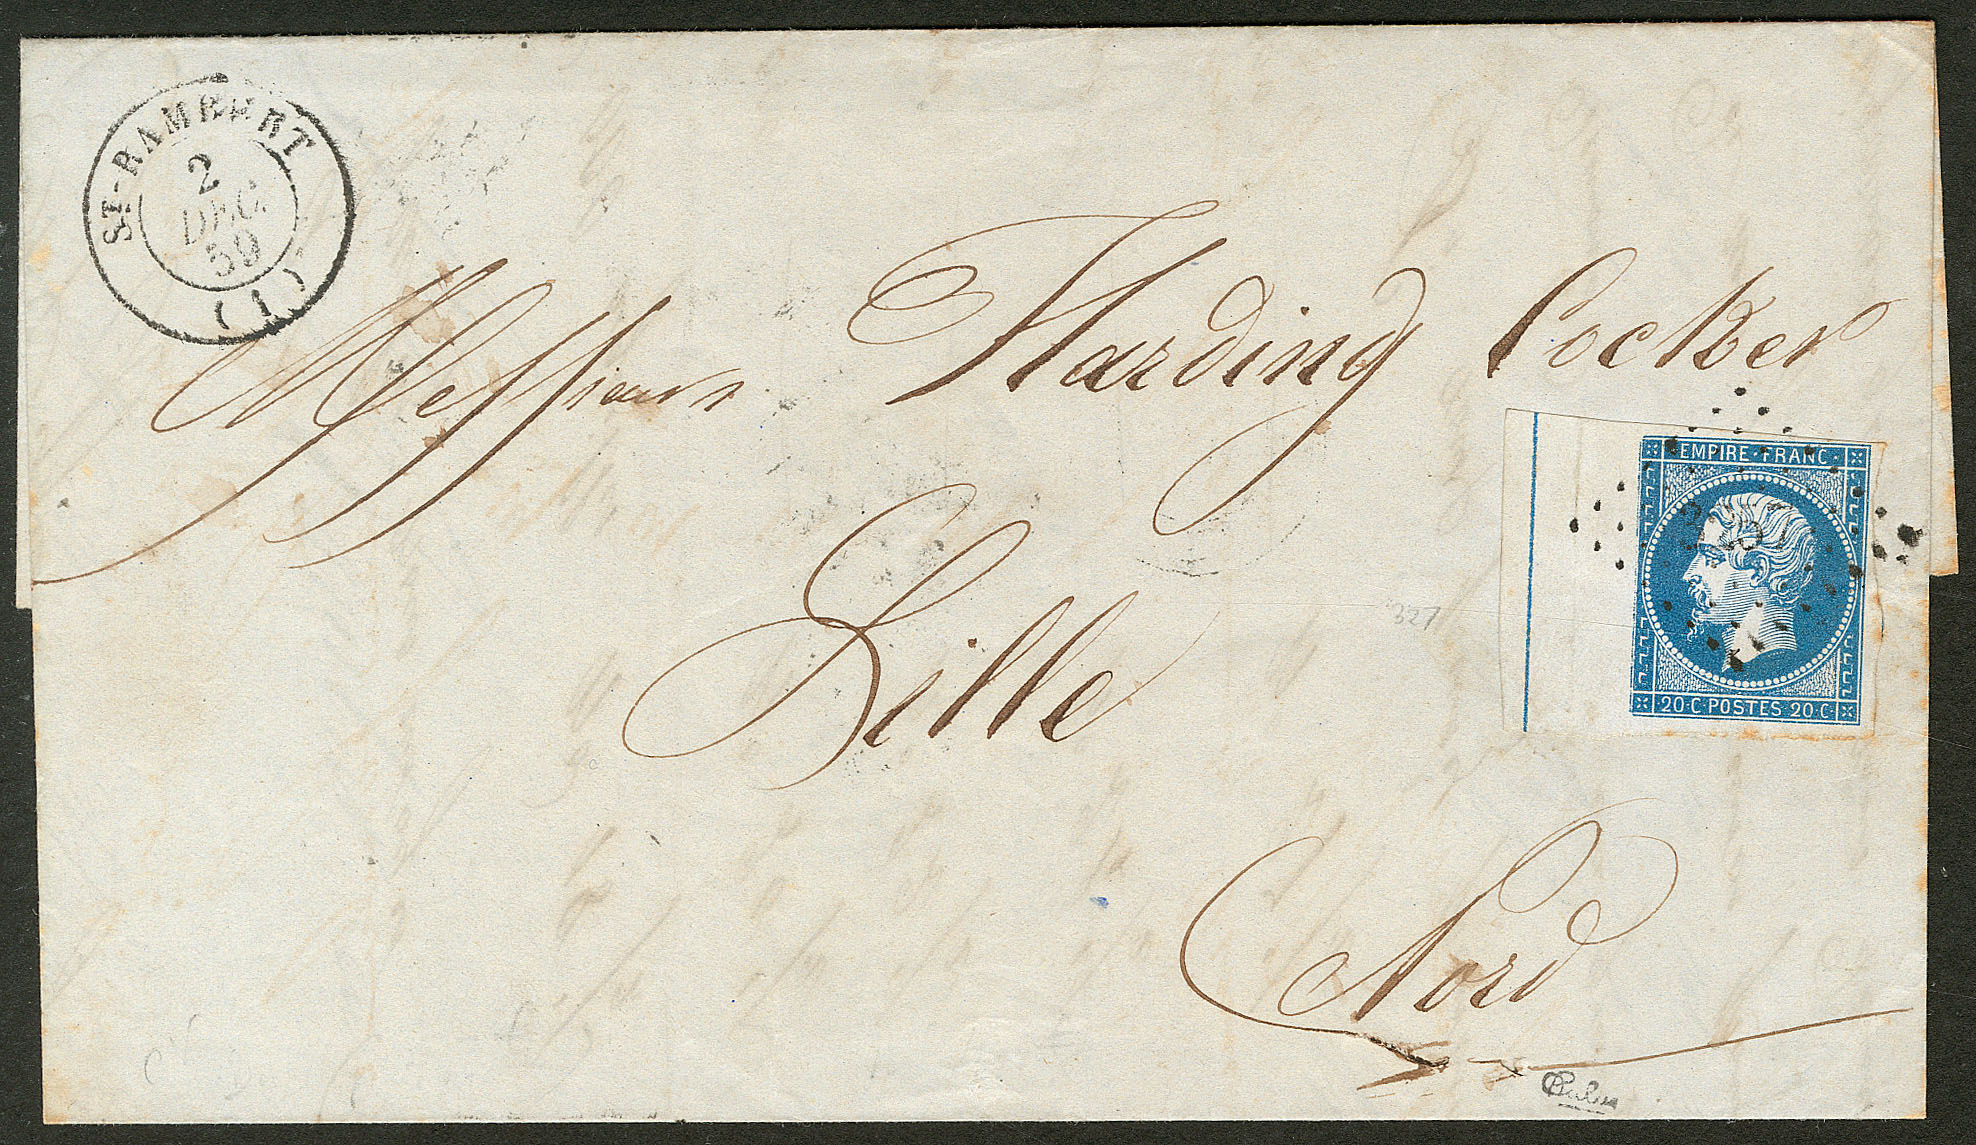 ST-RAMBERT
2
DEC
59
(1)
Messieurs Harding Cocker
EMPIRE·FRANC·
Lille
327
20·C·POSTES·20·C·
Nord